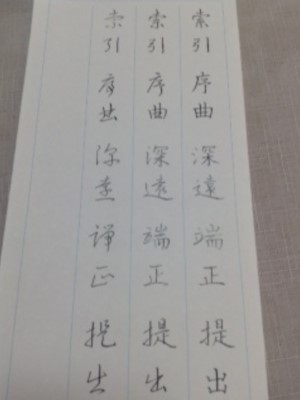 索引 序曲 深遠 端正 提出
索引 序曲 深遠 端正 提出
索引 序曲 深遠 端正 提出